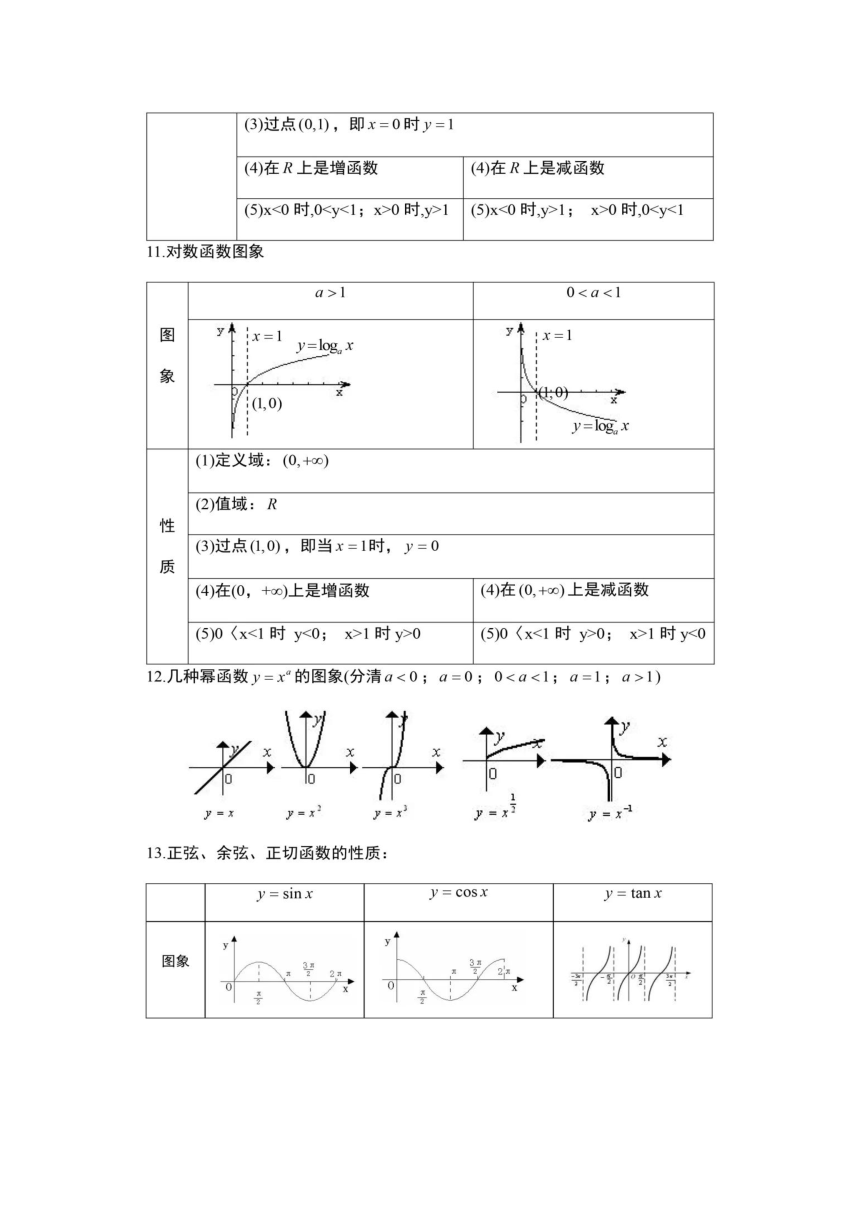 (3)过点(0,1)，即x = 0时y = 1
(4)在R上是增函数 (4)在R上是减函数
(5)x<0时,0<y<1；x>0时,y>1 (5)x<0时,y>1； x>0时,0<y<1
11.对数函数图象
a > 1 0 < a < 1
图象
y x = 1 y = logₐ x 0 x (1,0)
y x = 1 0 (1,0) x y = logₐ x
性质
(1)定义域：(0,+∞)
(2)值域：R
(3)过点(1,0)，即当x = 1时， y = 0
(4)在(0，+∞)上是增函数 (4)在(0,+∞)上是减函数
(5)0〈x<1时 y<0； x>1时y>0 (5)0〈x<1时 y>0； x>1时y<0
12.几种幂函数y = xᵃ的图象(分清a < 0；a = 0；0 < a < 1；a = 1；a > 1)
y x 0 y x 0 y x 0 y x 0 y x 0
y = x y = x² y = x³ y = x^{1/2} y = x⁻¹
13.正弦、余弦、正切函数的性质：
y = sin x y = cos x y = tan x
图象
y 0 π/2 π 3π/2 2π x
y 0 π/2 π 3π/2 2π x
y -3π/2 -π/2 O π/2 3π/2 x